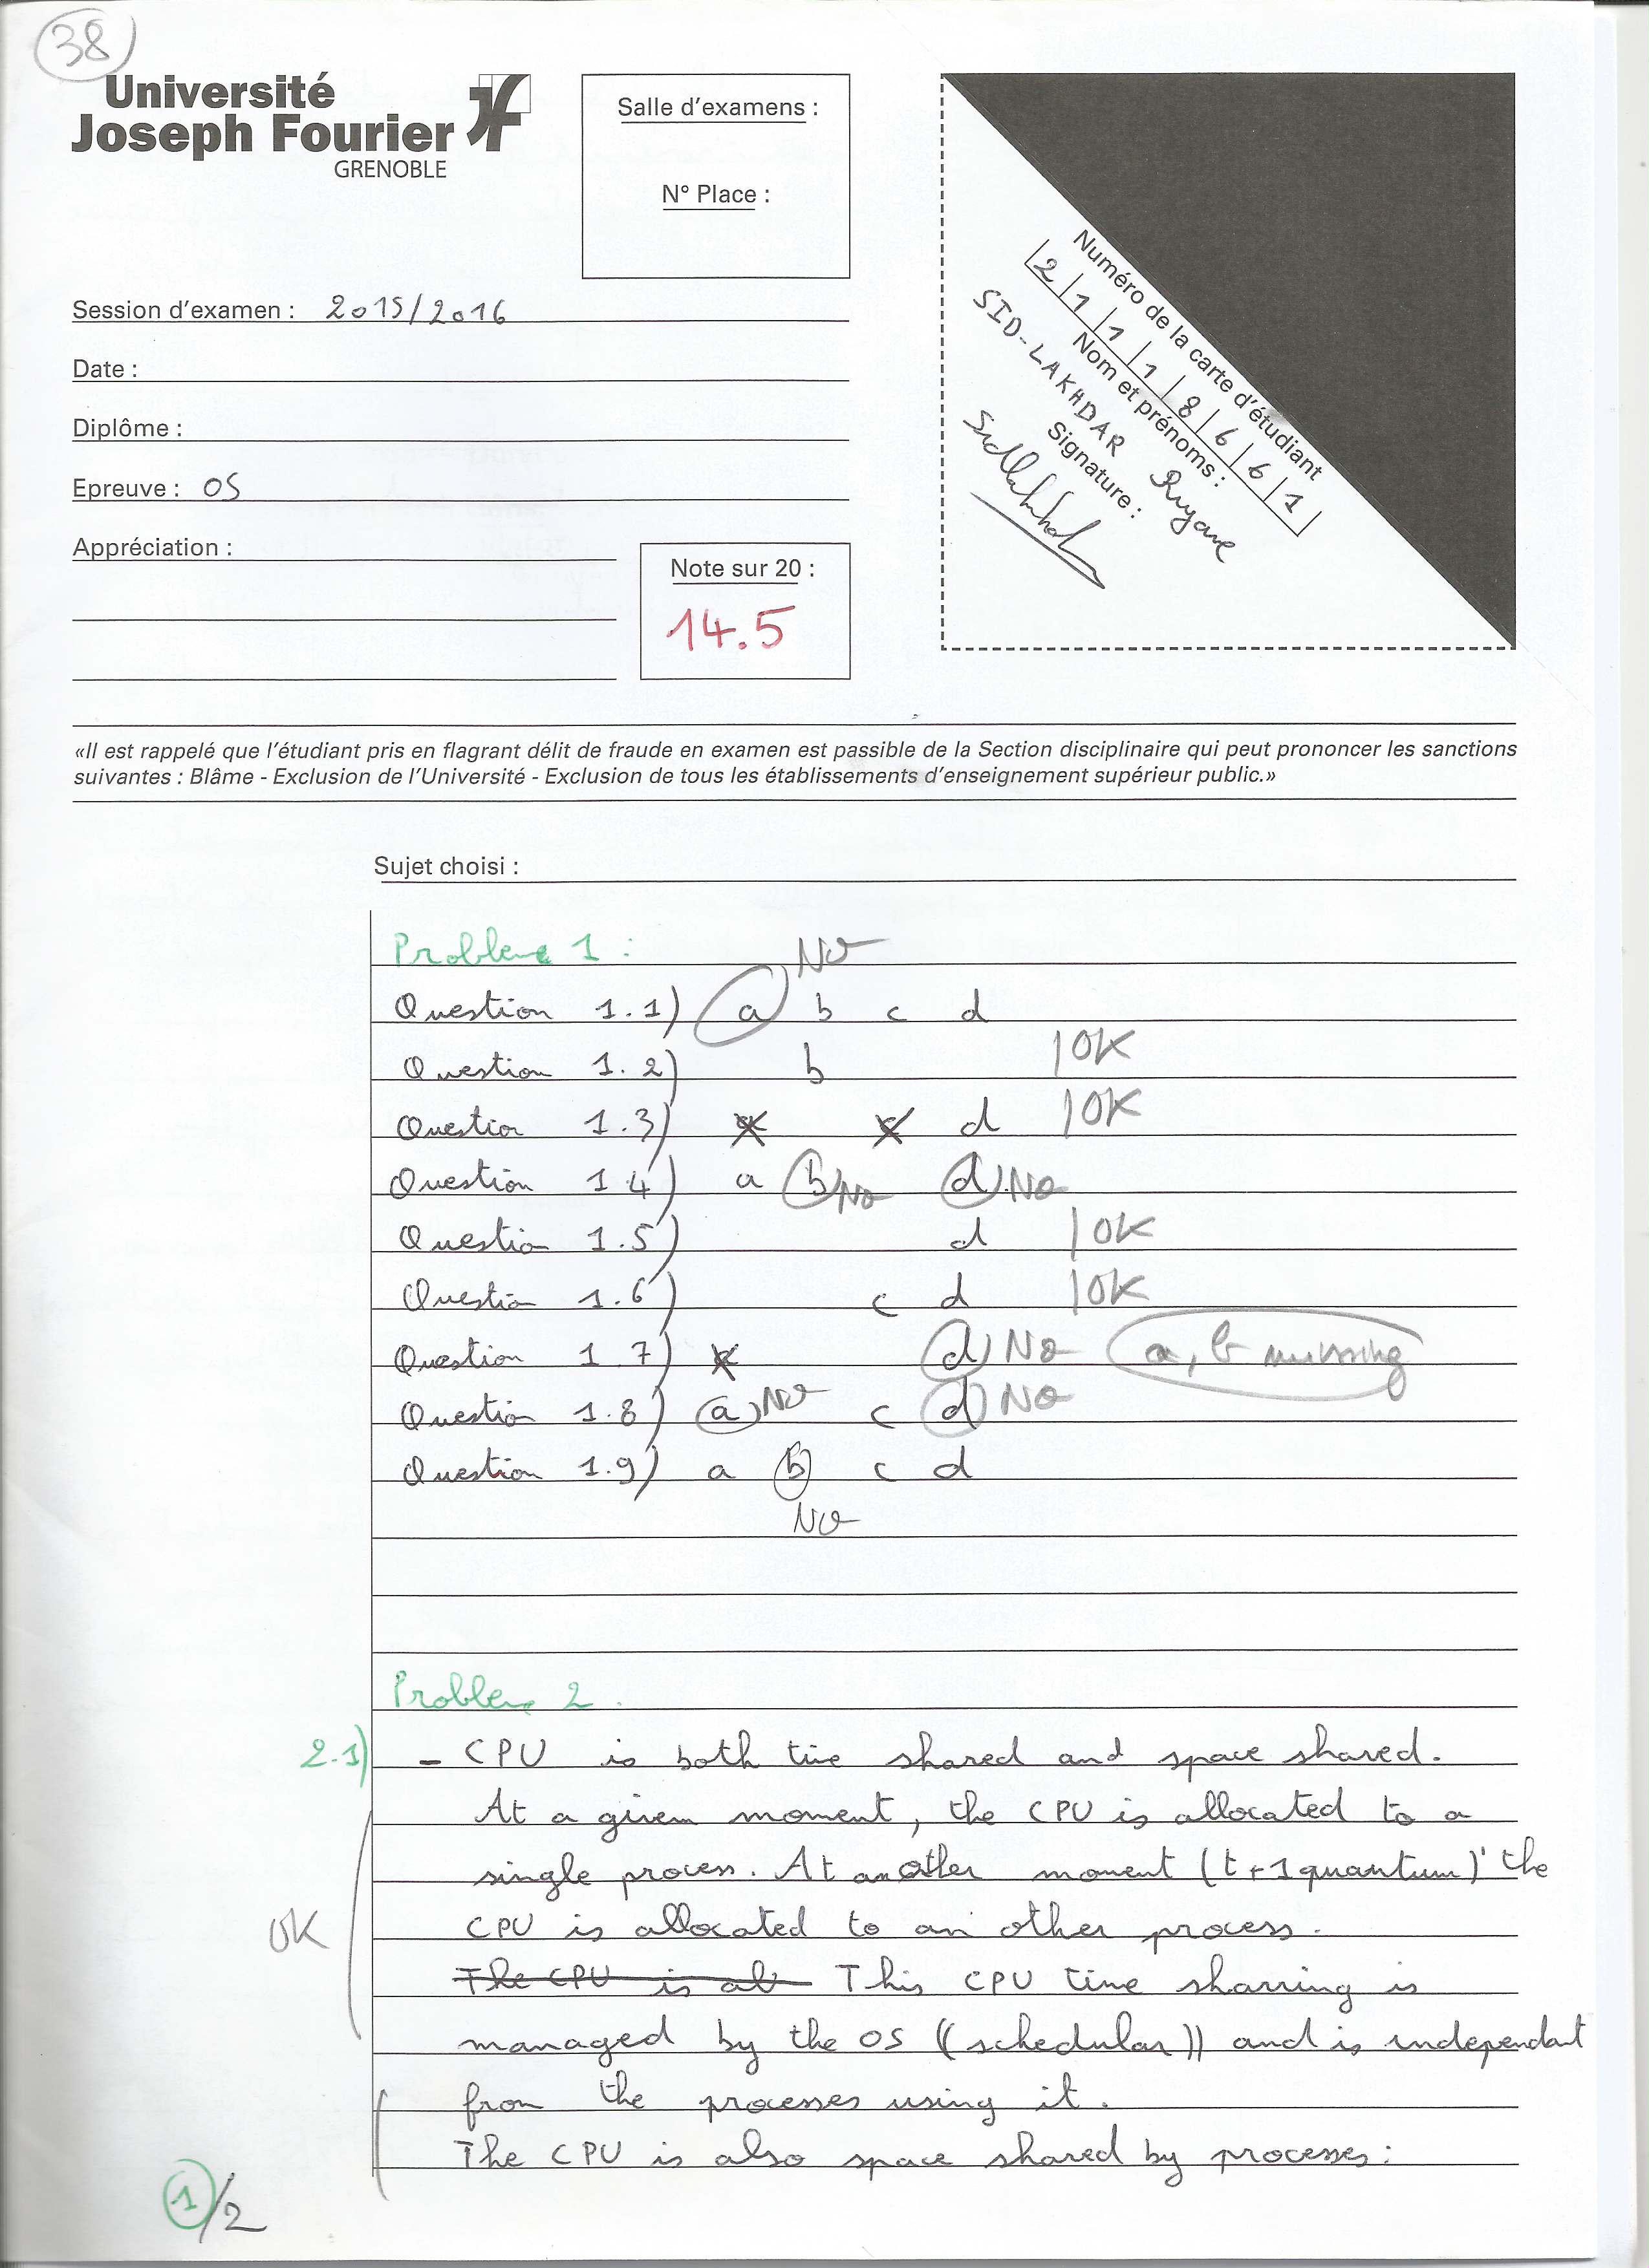 38
Université
Joseph Fourier
GRENOBLE
Salle d'examens :
N° Place :
Numéro de la carte d'étudiant
2 1 1 1 8 6 6 1
Nom et prénoms :
SID-LAKHDAR Ryane
Signature :
Session d'examen : 2015/2016
Date :
Diplôme :
Epreuve : OS
Appréciation :
Note sur 20 :
14.5
«Il est rappelé que l'étudiant pris en flagrant délit de fraude en examen est passible de la Section disciplinaire qui peut prononcer les sanctions
suivantes : Blâme - Exclusion de l'Université - Exclusion de tous les établissements d'enseignement supérieur public.»
Sujet choisi :
Probleme 1 :
No
Question 1.1) a b c d
Question 1.2) b OK
Question 1.3) d OK
Question 1.4) a b No d No
Question 1.5) d OK
Question 1.6) c d OK
Question 1.7) d No a, b missing
Question 1.8) a No c d No
Question 1.9) a b c d
No
Probleme 2.
2.1) - CPU is both time shared and space shared.
At a given moment, the CPU is allocated to a
single process. At another moment (t+1quantum) the
OK CPU is allocated to an other process.
The CPU is al This CPU time sharring is
managed by the OS ((schedular)) and is independant
from the processes using it.
The CPU is also space shared by processes:
1/2